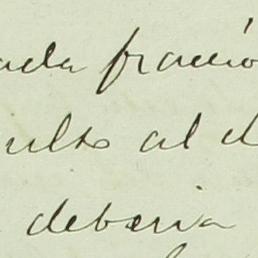 ada fraccio
ulto al d
deberia